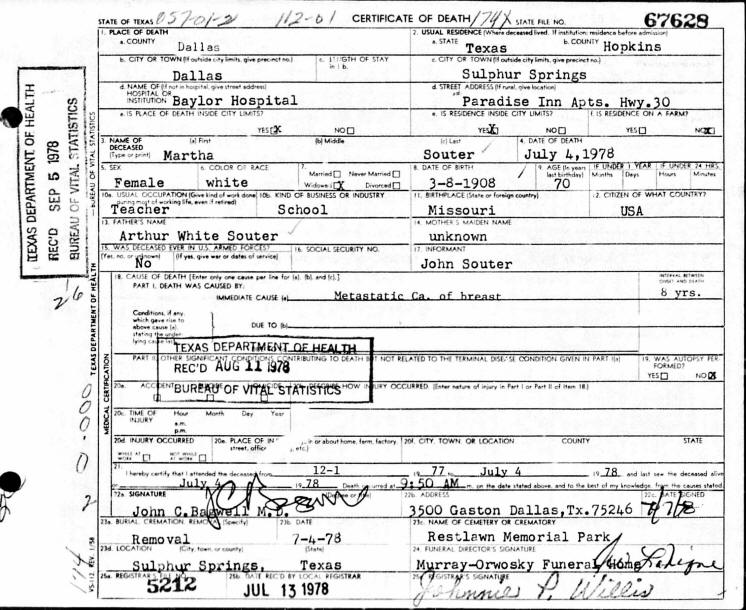 STATE OF TEXAS 057-01-2 112-01 CERTIFICATE OF DEATH 174X STATE FILE NO. 67628
1. PLACE OF DEATH 2. USUAL RESIDENCE (Where deceased lived. If institution: residence before admission)
a. COUNTY Dallas a. STATE Texas b. COUNTY Hopkins
b. CITY OR TOWN (If outside city limits, give precinct no.) Dallas c. LENGTH OF STAY in 1 b. c. CITY OR TOWN (If outside city limits, give precinct no.) Sulphur Springs
d. NAME OF (If not in hospital, give street address) HOSPITAL OR INSTITUTION Baylor Hospital d. STREET ADDRESS (If rural, give location) Paradise Inn Apts. Hwy.30
e. IS PLACE OF DEATH INSIDE CITY LIMITS? YES X NO e. IS RESIDENCE INSIDE CITY LIMITS? YES X NO f. IS RESIDENCE ON A FARM? YES NO X
3. NAME OF DECEASED (Type or print) (a) First Martha (b) Middle (c) Last Souter 4. DATE OF DEATH July 4,1978
5. SEX Female 6. COLOR OR RACE white 7. Married Never Married Widowed X Divorced 8. DATE OF BIRTH 3-8-1908 9. AGE (In years last birthday) 70 IF UNDER 1 YEAR Months Days IF UNDER 24 HRS. Hours Minutes
10a. USUAL OCCUPATION (Give kind of work done during most of working life, even if retired) Teacher 10b. KIND OF BUSINESS OR INDUSTRY School 11. BIRTHPLACE (State or foreign country) Missouri 12. CITIZEN OF WHAT COUNTRY? USA
13. FATHER'S NAME Arthur White Souter 14. MOTHER'S MAIDEN NAME unknown
15. WAS DECEASED EVER IN U.S. ARMED FORCES? (Yes, no, or unknown) (If yes, give war or dates of service) No 16. SOCIAL SECURITY NO. 17. INFORMANT John Souter
18. CAUSE OF DEATH [Enter only one cause per line for (a), (b), and (c).] INTERVAL BETWEEN ONSET AND DEATH
PART I. DEATH WAS CAUSED BY:
IMMEDIATE CAUSE (a) Metastatic Ca. of breast 8 yrs.
Conditions, if any, which gave rise to above cause (a), stating the under-lying cause last. DUE TO (b)
TEXAS DEPARTMENT OF HEALTH
REC'D AUG 11 1978
BUREAU OF VITAL STATISTICS
PART II. OTHER SIGNIFICANT CONDITIONS CONTRIBUTING TO DEATH BUT NOT RELATED TO THE TERMINAL DISEASE CONDITION GIVEN IN PART I(a) 19. WAS AUTOPSY PERFORMED? YES NO X
20a. ACCIDENT SUICIDE 20b. DESCRIBE HOW INJURY OCCURRED. (Enter nature of injury in Part I or Part II of item 18.)
20c. TIME OF INJURY Hour Month Day Year a.m. p.m.
20d. INJURY OCCURRED WHILE AT WORK NOT WHILE AT WORK 20e. PLACE OF IN in or about home, farm, factory, street, office etc.) 20f. CITY, TOWN, OR LOCATION COUNTY STATE
21. I hereby certify that I attended the deceased from 12-1 19 77 to July 4 19 78 and last saw the deceased alive
on July 4 19 78 Death occurred at 9:50 AM m. on the date stated above, and to the best of my knowledge, from the causes stated.
22a. SIGNATURE (Degree or title) John C.Bagwell M.D. 22b. ADDRESS 3500 Gaston Dallas,Tx.75246 22c. DATE SIGNED
23a. BURIAL, CREMATION, REMOVAL (Specify) Removal 23b. DATE 7-4-78 23c. NAME OF CEMETERY OR CREMATORY Restlawn Memorial Park
23d. LOCATION (City, town, or county) (State) Sulphur Springs, Texas 24. FUNERAL DIRECTOR'S SIGNATURE Murray-Orwosky Funeral Home
25a. REGISTRAR'S FILE NO. 5212 25b. DATE REC'D BY LOCAL REGISTRAR JUL 13 1978 25c. REGISTRAR'S SIGNATURE Johnnie P. Willis
TEXAS DEPARTMENT OF HEALTH
REC'D SEP 5 1978
BUREAU OF VITAL STATISTICS
TEXAS DEPARTMENT OF HEALTH — BUREAU OF VITAL STATISTICS
MEDICAL CERTIFICATION
VS-112 REV. 1/58
26
0
0
0
0
2
174